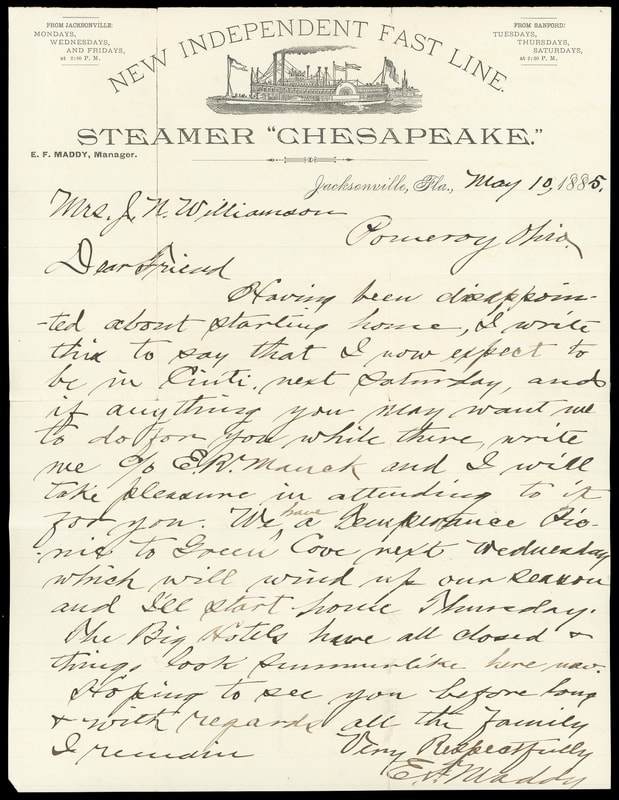 FROM JACKSONVILLE:
MONDAYS,
WEDNESDAYS,
AND FRIDAYS,
at 2:30 P. M.
FROM SANFORD:
TUESDAYS,
THURSDAYS,
SATURDAYS,
at 2:30 P. M.
NEW INDEPENDENT FAST LINE.
STEAMER "CHESAPEAKE."
E. F. MADDY, Manager.
Jacksonville, Fla., May 10, 1885.
Mrs. J. N. Williamson
Pomeroy Ohio,
Dear Friend
Having been disappoin-
-ted about starting home, I write
this to say that I now expect to
be in Cinti. next Saturday, and
if anything you may want me
to do for you while there, write
me c/o E.R. Mauck and I will
take pleasure in attending to it
for you. We have a Temperance Pic-
-nic to Green Cove next Wednesday
which will wind up our season
and I'll start home Thursday.
The Big Hotels have all closed &
things look summerlike here now.
Hoping to see you before long
& with regards all the family
I remain Very Respectfully
E.F. Maddy